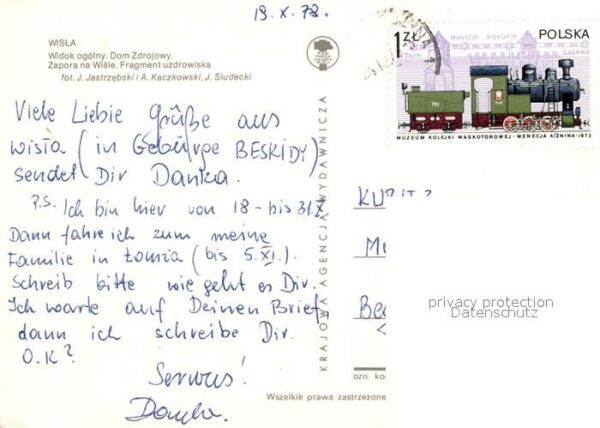 19.X.78.
WISŁA
Widok ogólny. Dom Zdrojowy.
Zapora na Wiśle. Fragment uzdrowiska
fot. J. Jastrzębski i A. Kaczkowski, J. Siudecki
Viele Liebie Grüße aus
Wisła (in Gebürge BESKIDY)
sendet Dir Danka.
P.S. Ich bin hier von 18 - bis 31.X
Dann fahre ich zum meine
Familie in Łomża (bis 5.XI.).
Schreib bitte wie geht es Dir.
Ich warte auf Deinen Brief
dann ich schreibe Dir.
O.K?
Serwus!
Danka.
KRAJOWA AGENCJA WYDAWNICZA
1ZŁ
POLSKA
WENECJA BISKUPIN
ŻNIN
GĄSAWA
MUZEUM KOLEJKI WĄSKOTOROWEJ-WENECJA k/ŻNINA-1973
privacy protection
Datenschutz
ozn. ko
Wszelkie prawa zastrzeżone